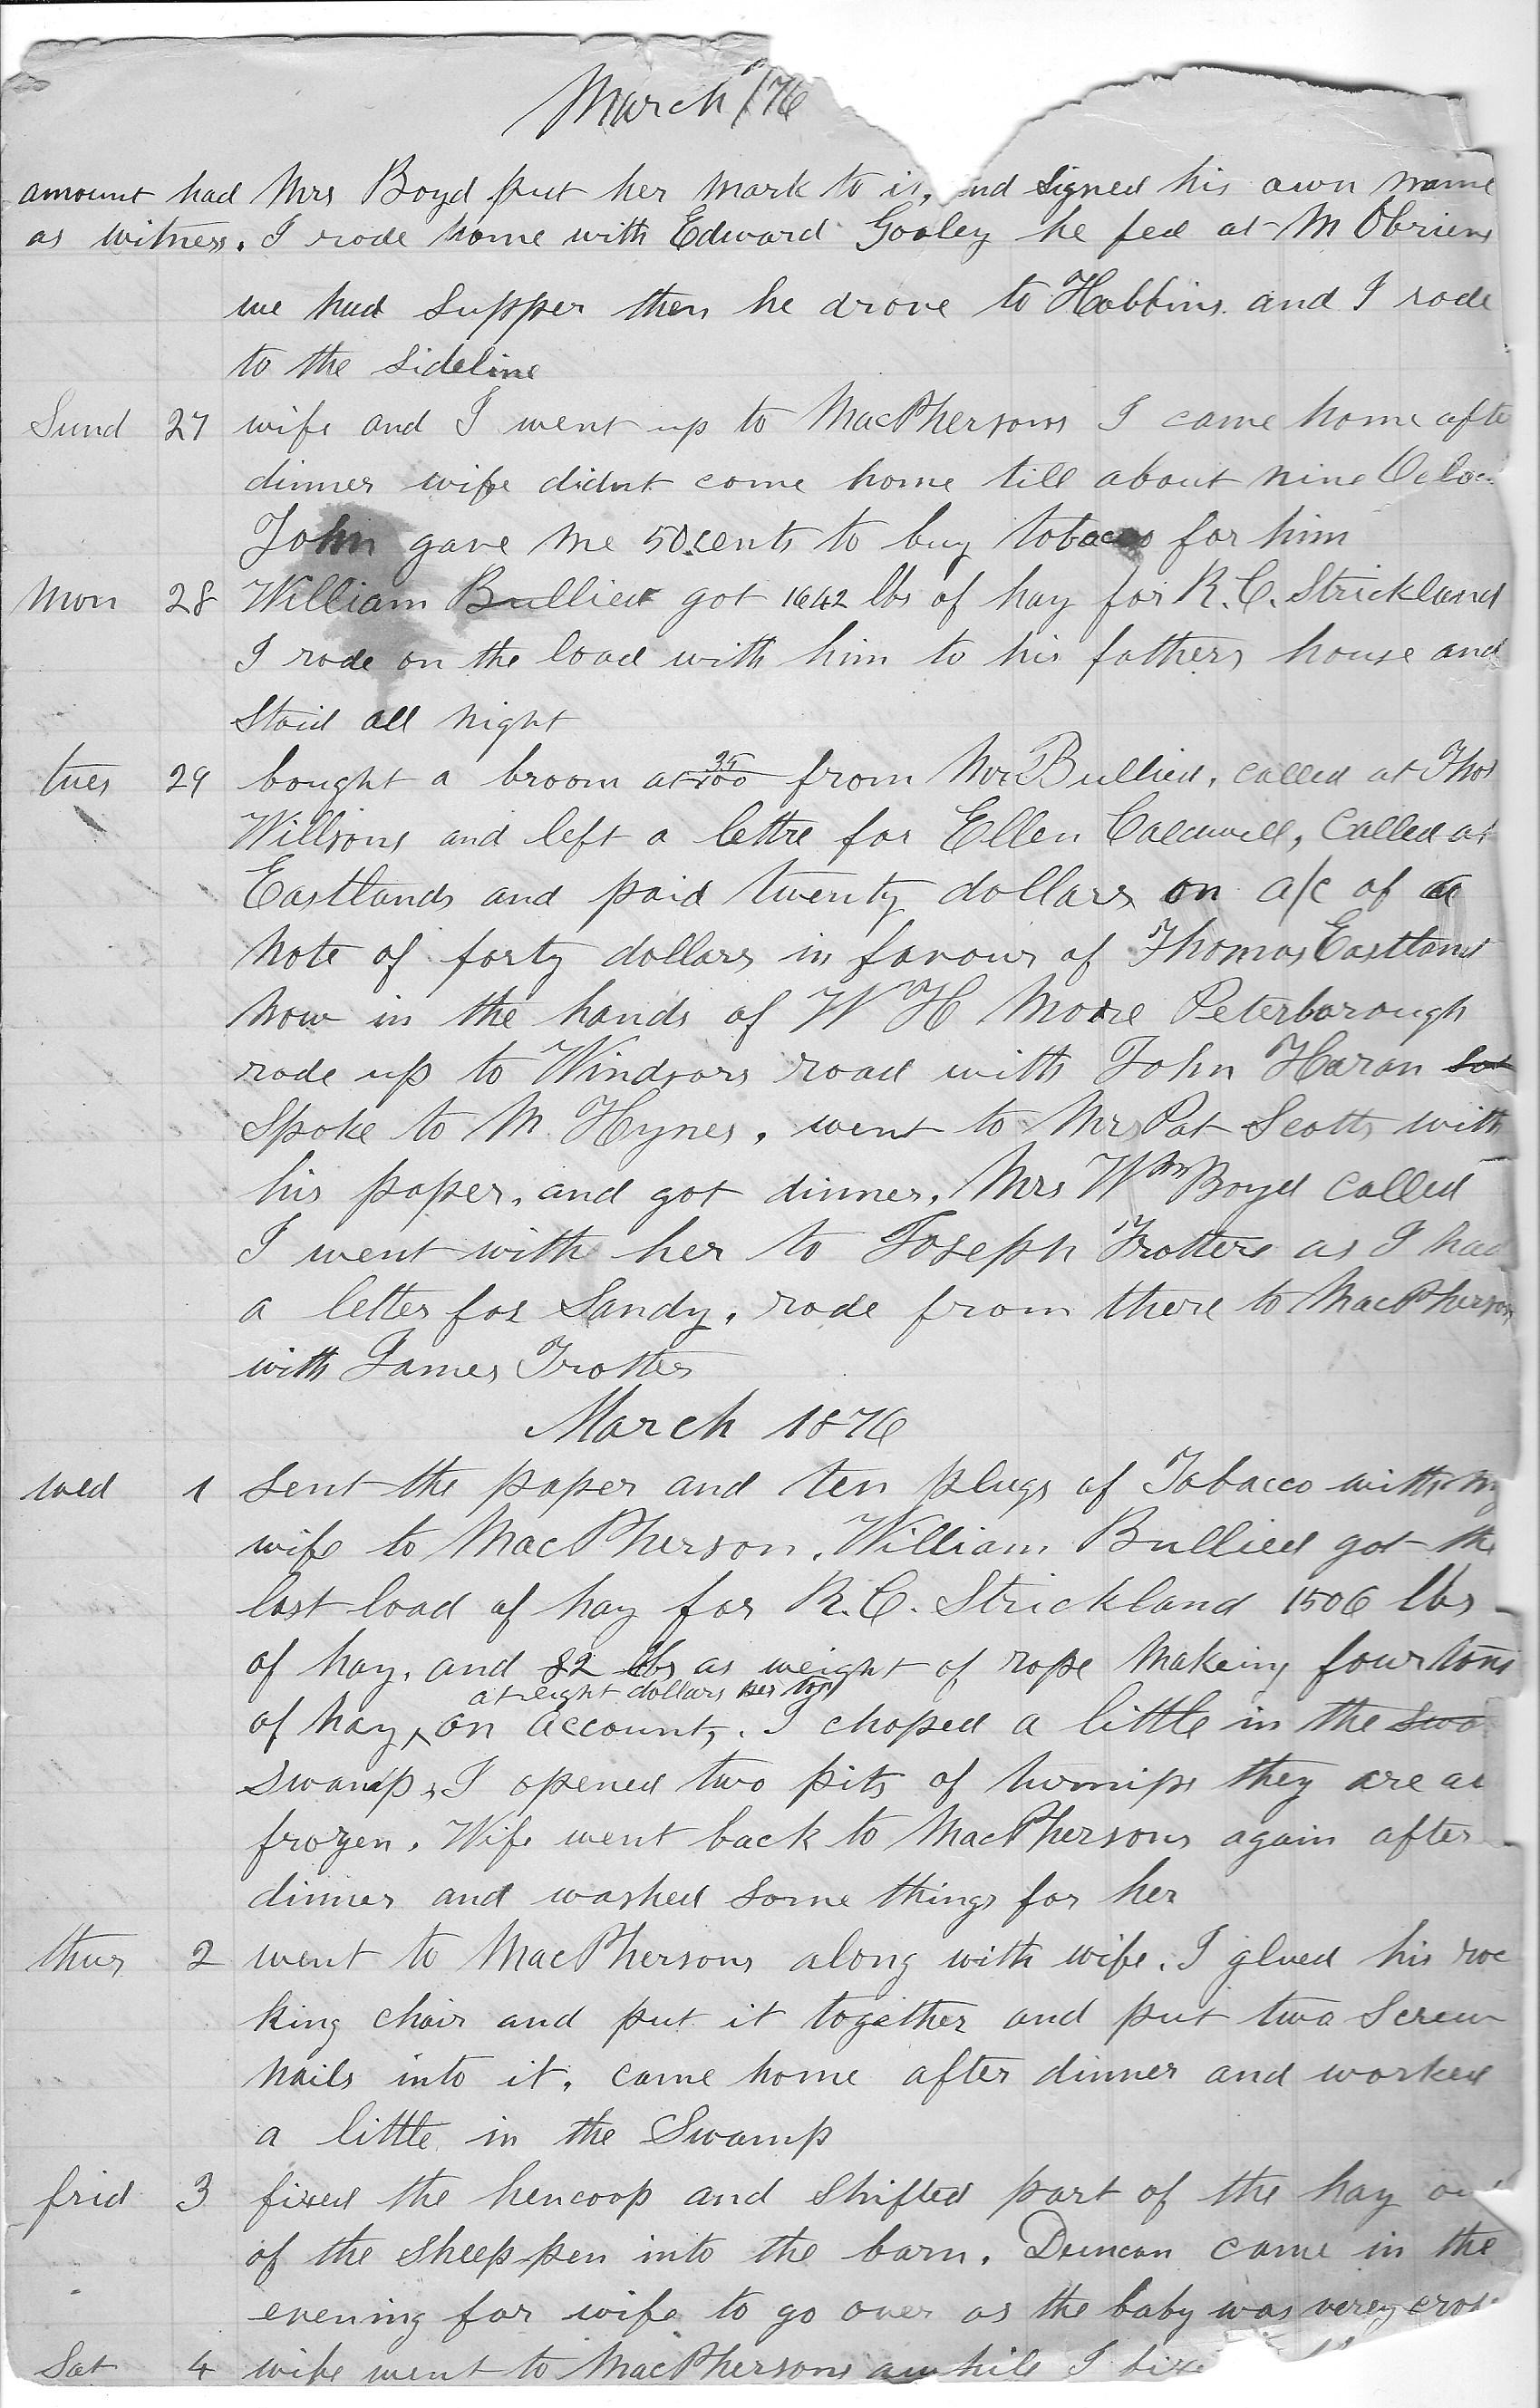 March /76
amount had Mrs Boyd put her mark to it, and signed his own name
as witness. I rode home with Edward Gooley he fed at M Obriens
we had supper then he drove to Hobbins. and I rode
to the sideline
Sund 27 wife and I went up to MacPhersons I came home afte
dinner wife didnt come home till about nine Ocloc
John gave me 50.cents to buy tobacco for him
Mon 28 William Bullied got 1642 lbs of hay for R. C. Strickland
I rode on the load with him to his fathers house and
staid all night
tues 29 bought a broom at 35/100 from Mr Bullied, called at Thos
Willsons and left a lettre for Ellen Caldwell, Called at
Eastlands and paid twenty dollars on a/c of a
note of forty dollars in favour of Thomas Eastland
now in the hands of W H Moore Peterborough
rode up to Windsors road with John Haran
Spoke to M. Hynes, went to Mr Pat Scotts with
his paper, and got dinner, Mrs Wm Boyd called
I went with her to Joseph Trotters as I had
a letter for Sandy, rode from there to MacPherson
with James Trotter
March 1876
wed 1 sent the paper and ten plugs of Tobacco with my
wife to MacPherson, William Bullied got the
last load of hay for R. C. Strickland 1506 lbs
of hay, and 82 lbs as weight of rope Makeing four tons
at eight dollars per ton
of hay ^ on account, I choped a little in the swa
swamp, I opened two pits of turnips they are al
frozen, Wife went back to MacPhersons again after
dinner and washed some things for her
thur 2 went to MacPhersons along with wife. I glued his roc
king chair and put it together and put two Screw
nails into it, came home after dinner and worked
a little in the Swamp
frid 3 fixed the hencoop and shifted part of the hay out
of the sheep pen into the barn. Duncan came in the
evening for wife to go over as the baby was verey cross
Sat 4 wife went to MacPhersons awhile I fixe